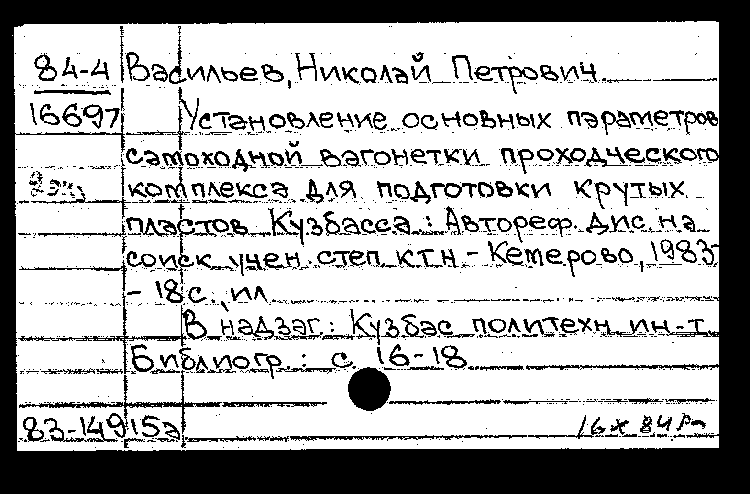 84-4 Васильев, Николай Петрович.
16697 Установление основных параметров
самоходной вагонетки проходческого
2 экз комплекса для подготовки крутых
пластов Кузбасса: Автореф. дис на
соиск учен. степ. к.т.н - Кемерово, 1983-
- 18 с., ил
В надзаг.: Кузбас политехн. ин-т.
Библиогр.: с. 16-18
83-14915а